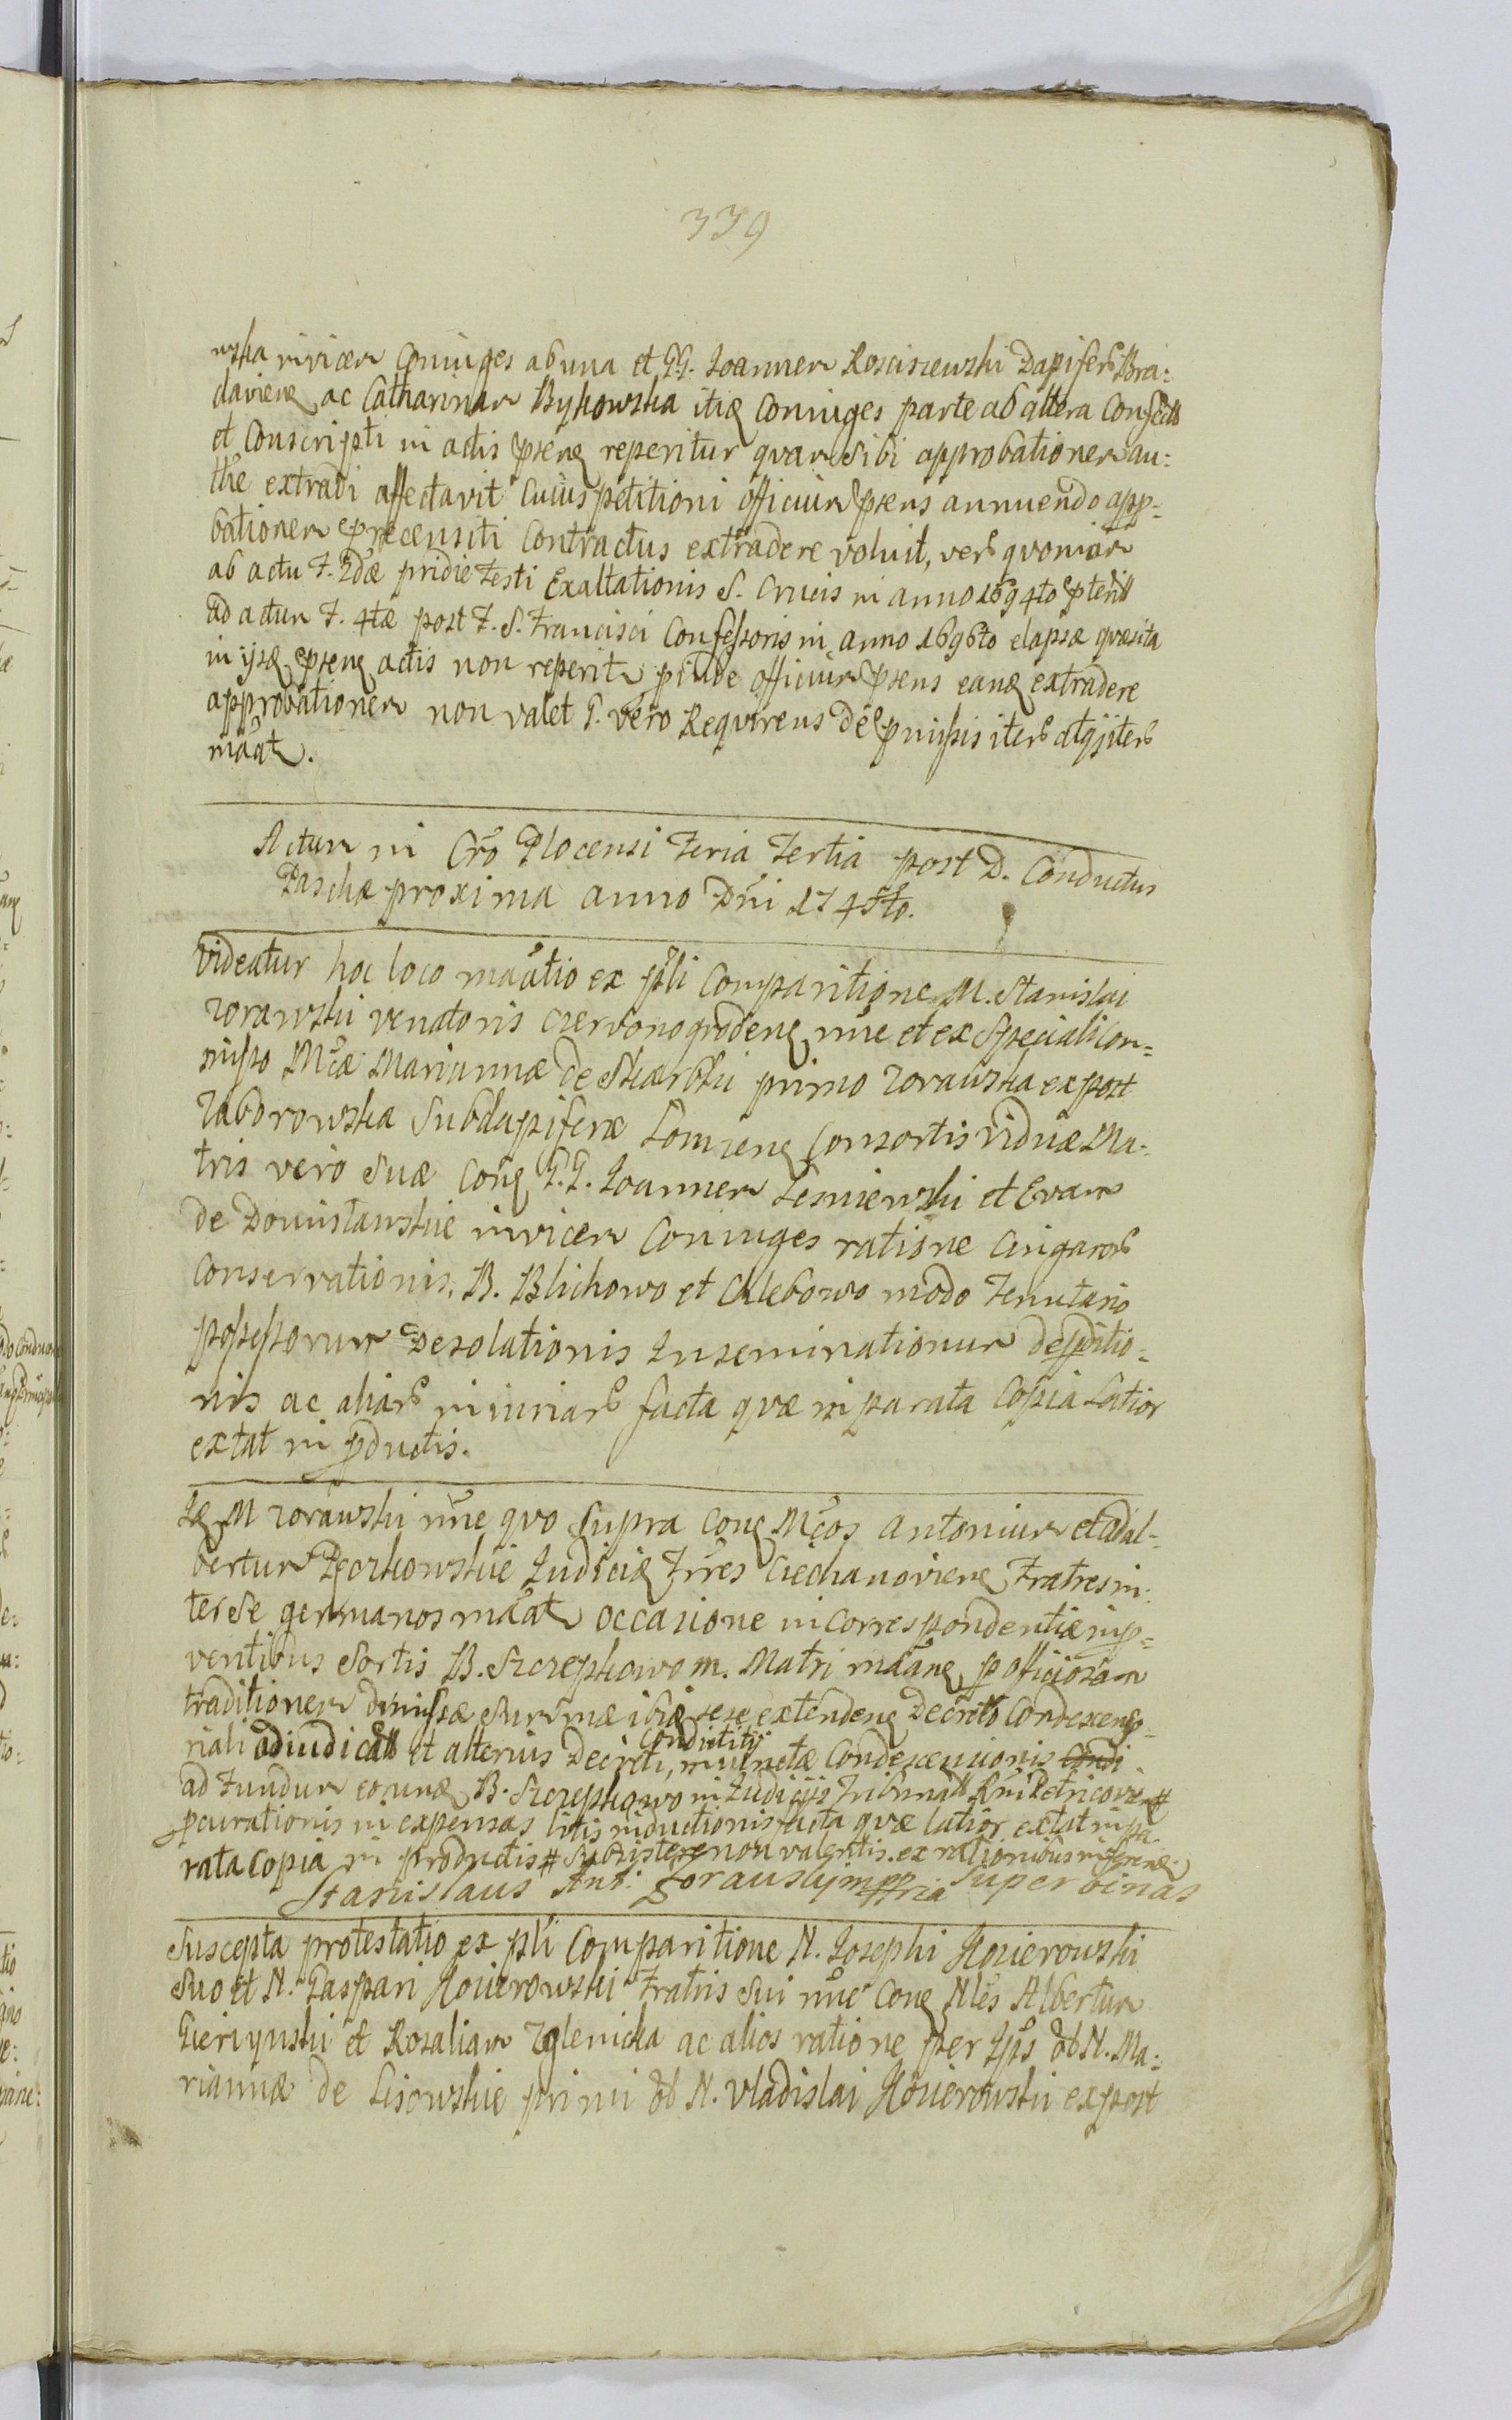 339
wska invicem Coniuges ab una et G.G. Joannem Rosciszewski Dapiferũ Bra:
claviens ac Catharinam Bykowska itid Coniuges parte ab altera Confecti
et Conscripti in actis psens reperitur quam sibi approbationem au:
the extradi affectavit Cuius petitioni officium psens annuendo app=
bationem precensiti Contractus extradere voluit, verũ qvoniam
ab actu F. 2dæ pridie Festi Exaltationis S. Crucis in anno 1694to pteriti
ad actum F. 4tæ post F. S. Francisci Confessoris in anno 1696to elapsæ quæsita
in ijsd psens actis non reperitr pinde officium psens eand extradere
approbationem non valet G. vero Reqvirens de pmissis iterũ atq iterũ
mãatr.
Actum in Crõ Plocensi Feria Tertia post D. Conductus
Paschæ proxima anno Dñi 1745to.
Videatur hoc loco maãtio ex pli Comparitione M. Stanislai
Zorawski venatoris Czerwonogrodens nñe et ex Speciali Com=
misso Mcæ Mariannæ de Skarbki primo Zorawska ex post
Zaborowska Subdapiferæ Lomzens Consortis viduæ Ma-
tris vero Suæ Cong G.G. Joannem Lesniewski et Evam
de Domislawskie invicem Coniuges ratione Cingarorũ
Conservationis, B. Blichowo et Chlebowo modo Tenutario
possessorum Desolationis Inseminationum desptio=
nis ac aliarũ iniuriarũ facta quæ in parata Copia Latior
extat in pductis.
Id M Zorawski nñe qvo Supra Cong Mcos Antonium et Adal=
bertum Pczkowskie Judicis Tris Ciechanoviens Fratres in:
ter Se germanos mãatr occasione in Correspondentiæ in p=
ventibus Sortis B. Szczepkowo m. Matri mãans p officiosam
traditionem dimissæ Summæ ibid sese extendens Decreto Condescenso=
riali adiudicati et alterius Decreti, Condictitij mulctæ Condescensionis Condi
ad Fundum eorund B. Szczepkowo in Judicijs Tribunali Rni Petricovien #
pcurationis in expensas litis inductionis facta quæ latior extat in pa
rata Copia in productis # Subsistere non valentis. ex rationibus inferend.
Stanislaus Ant: Zorawsky mppria Super binas
Suscepta protestatio ex pli Comparitione N. Josephi Kozierowski
Suo et N. Gaspari Kozierowski Fratris Sui nñe Cong Nles Albertum
Gierzynski et Rosaliam Zglenicka ac alios ratione per Ips ol N. Ma:
riannæ de Lisowskie primi ol N. Vladislai Kozierowski ex post